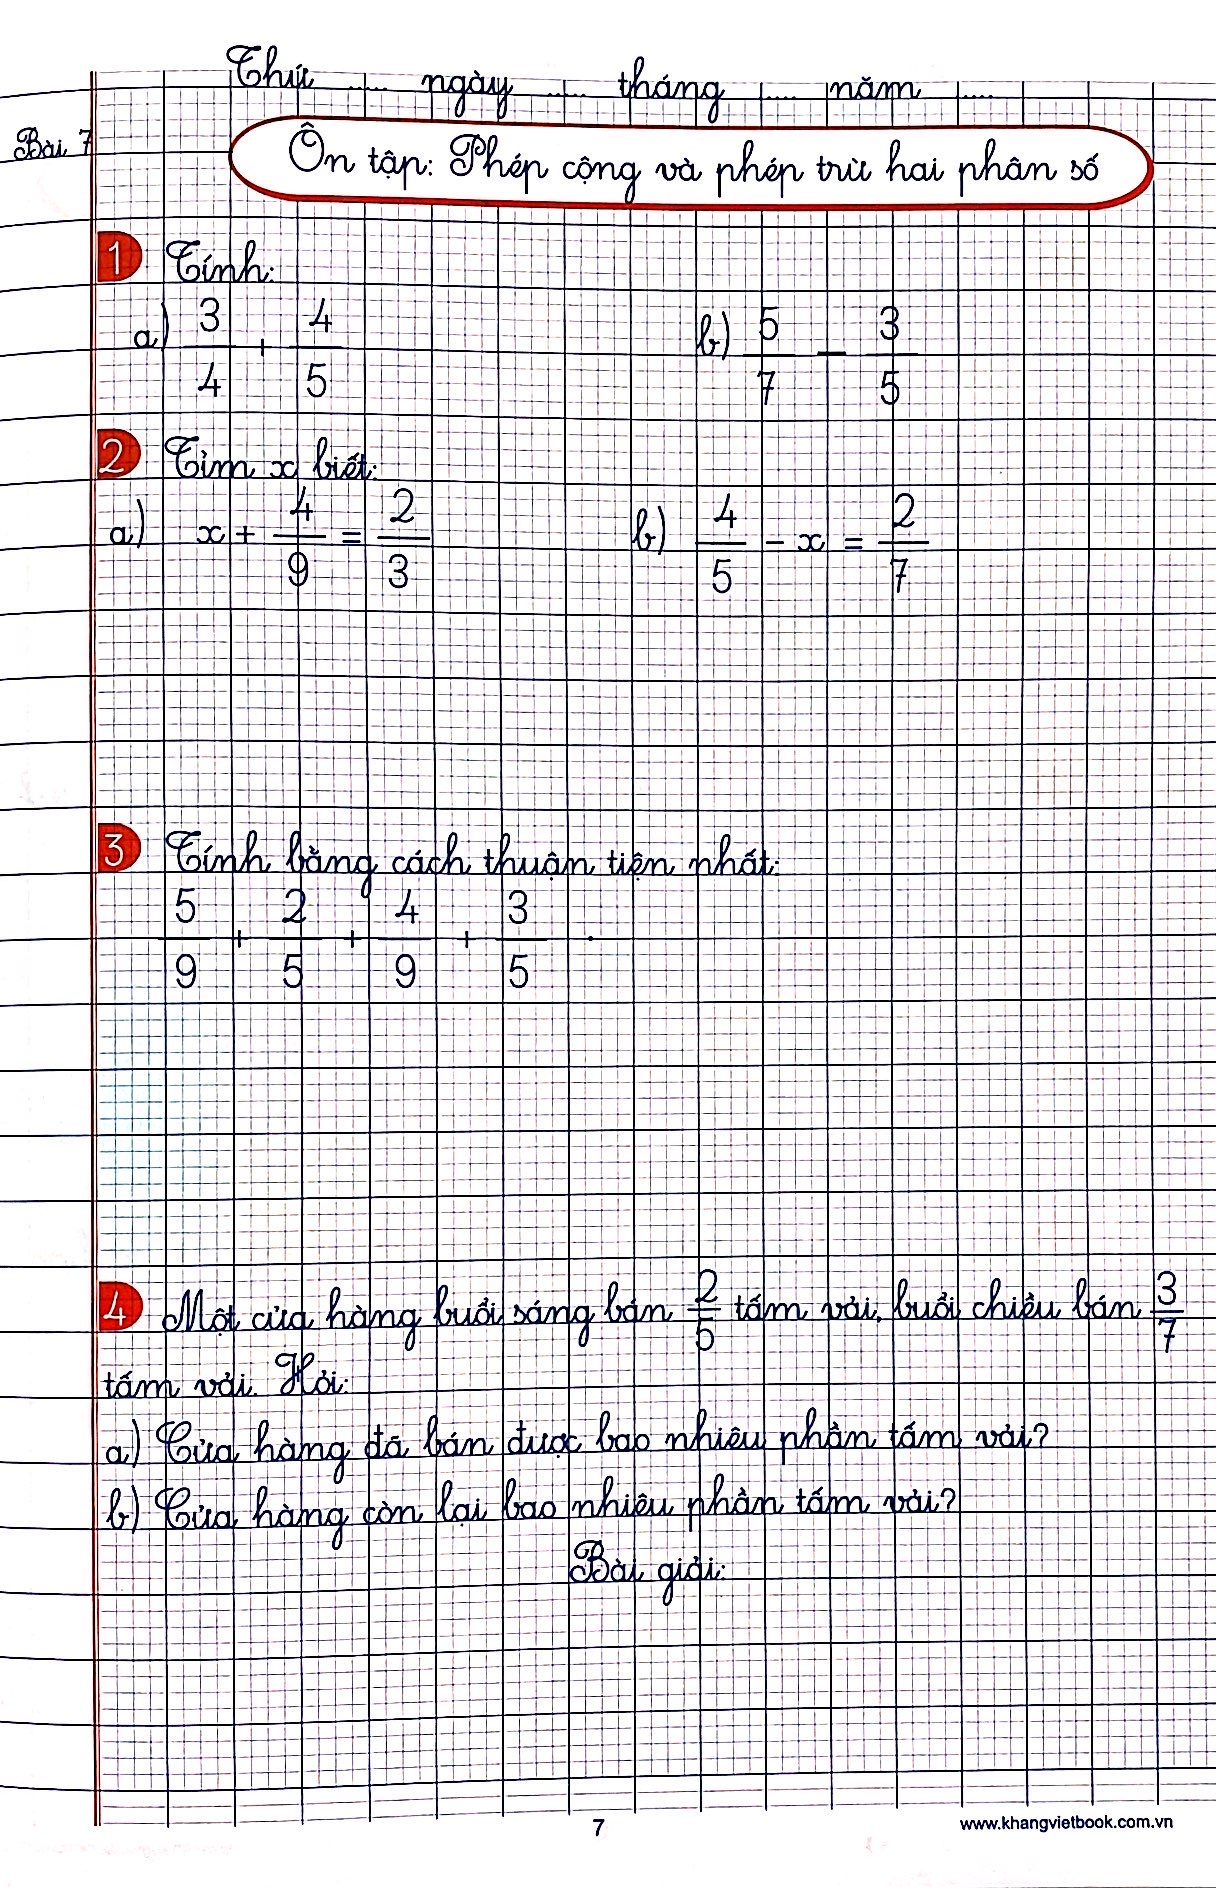 Thứ ..... ngày ..... tháng ..... năm .....
Bài 7
Ôn tập: Phép cộng và phép trừ hai phân số
1 Tính:
a) 3/4 + 4/5 b) 5/7 - 3/5
2 Tìm x biết:
a) x + 4/9 = 2/3 b) 4/5 - x = 2/7
3 Tính bằng cách thuận tiện nhất:
5/9 + 2/5 + 4/9 + 3/5 .
4 Một cửa hàng buổi sáng bán 2/5 tấm vải, buổi chiều bán 3/7
tấm vải. Hỏi:
a) Cửa hàng đã bán được bao nhiêu phần tấm vải?
b) Cửa hàng còn lại bao nhiêu phần tấm vải?
Bài giải:
7
www.khangvietbook.com.vn